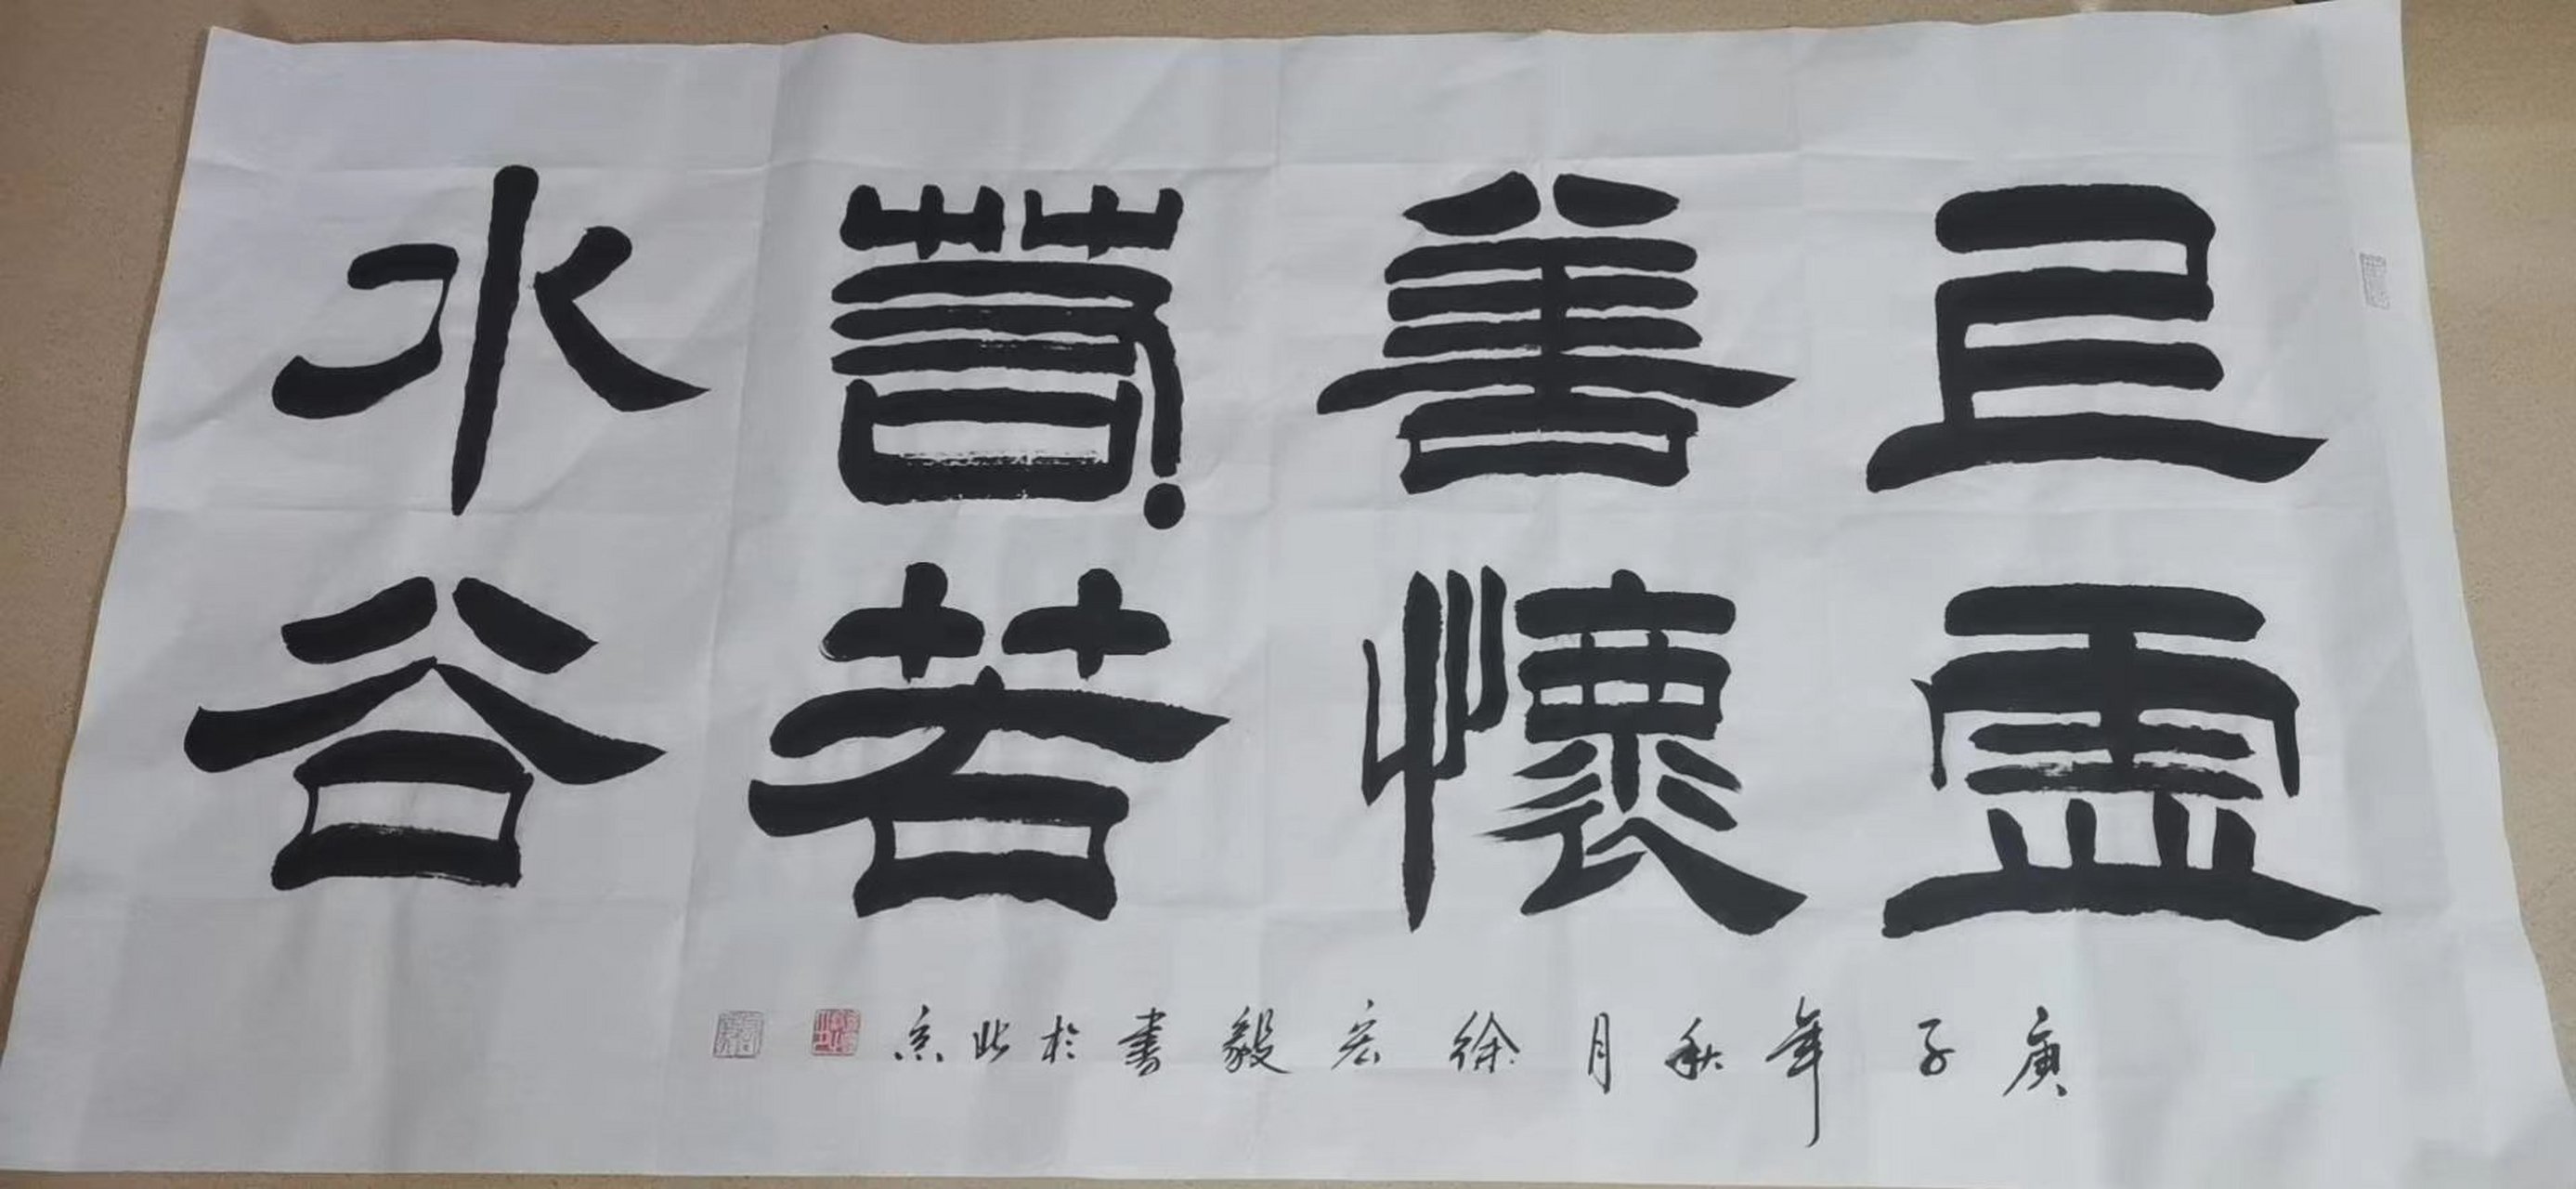 上善若水
虛懷若谷
庚子年秋月徐宏毅書於北京